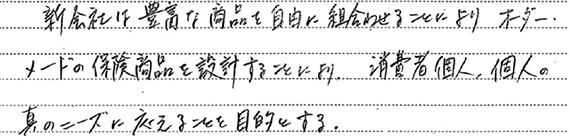 新会社は豊富な商品を自由に組合わせることにより オーダー・
メードの保険商品を設計することにより、消費者個人、個人の
真のニーズに応えることを目的とする.